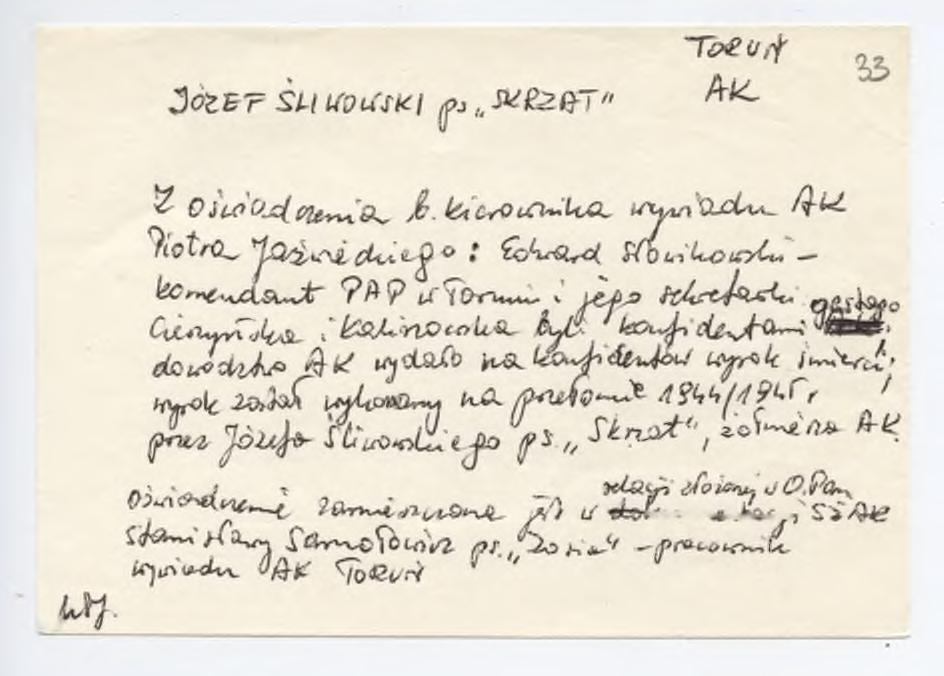 TORUŃ
33
AK
JÓZEF ŚLIWOWSKI ps. „SKRZAT"
Z oświadczenia b. kierownika wywiadu AK
Piotra Jaźwieckiego: Edward Słowikowski –
komendant PAP w Toruniu i jego sekretarki
Cieszyńska i Kalinowska byli konfidentami gestapo.
dowództwo AK wydało na konfidentów wyrok śmierci;
wyrok został wykonany na przełomie 1944/1945 r.
przez Józefa Śliwowskiego ps. „Skrzat", żołnierza AK.
relacji złożonej w O. Pom.
oświadczenie zamieszczone jest w ŚŻAK
Stanisławy Samołowicz ps. „Zosia" – pracownik
wywiadu AK TORUŃ